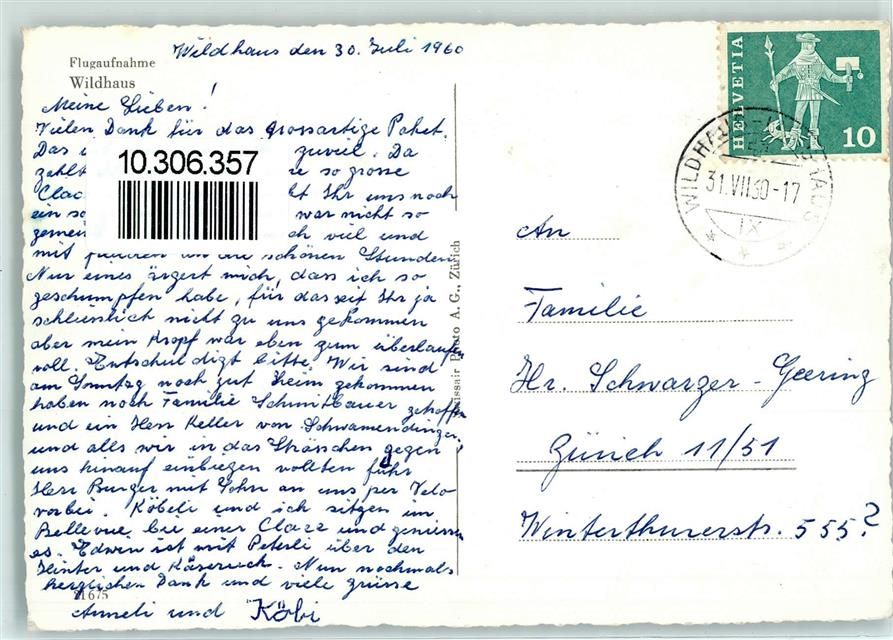 Flugaufnahme
Wildhaus
Wildhaus den 30. Juli 1960
Meine Lieben!
Vielen Dank für das grossartige Paket.
Das zuviel. Da
zahlt so grosse
Clac Ihr uns noch
ein war nicht so
gemein viel und
mit schönen Stunden
Nur eines ärgert mich, dass ich so
geschumpfen habe, für das seit Ihr ja
schliesslich nicht zu uns gekommen
aber mein Kropf war eben zum überlaufen
voll. Entschuldigt bitte. Wir sind
am Sonntag noch gut heim gekommen
haben noch Familie Schmidbauer getroffen
und ein Herr Keller von Schwamendingen
und alls wir in das Strässchen gegen
uns hinauf einbiegen wollten fuhr
Herr Burger mit Sohn an uns per Velo
vorbei. Köbeli und ich sitzen im
Bellevue bei einer Clace und geniessen
es. Edwin ist mit Peterli über den
Hinter und Käserruck. Nun nochmals
herzlichen Dank und viele Grüsse
Anneli und Köbi
10.306.357
21675
Swissair Photo A. G., Zürich
HELVETIA
10
WILDHAUS
31.VII.60-17
IX
An
Familie
Hr. Schwarzer-Geering
Zürich 11/51
Winterthurerstr. 555?